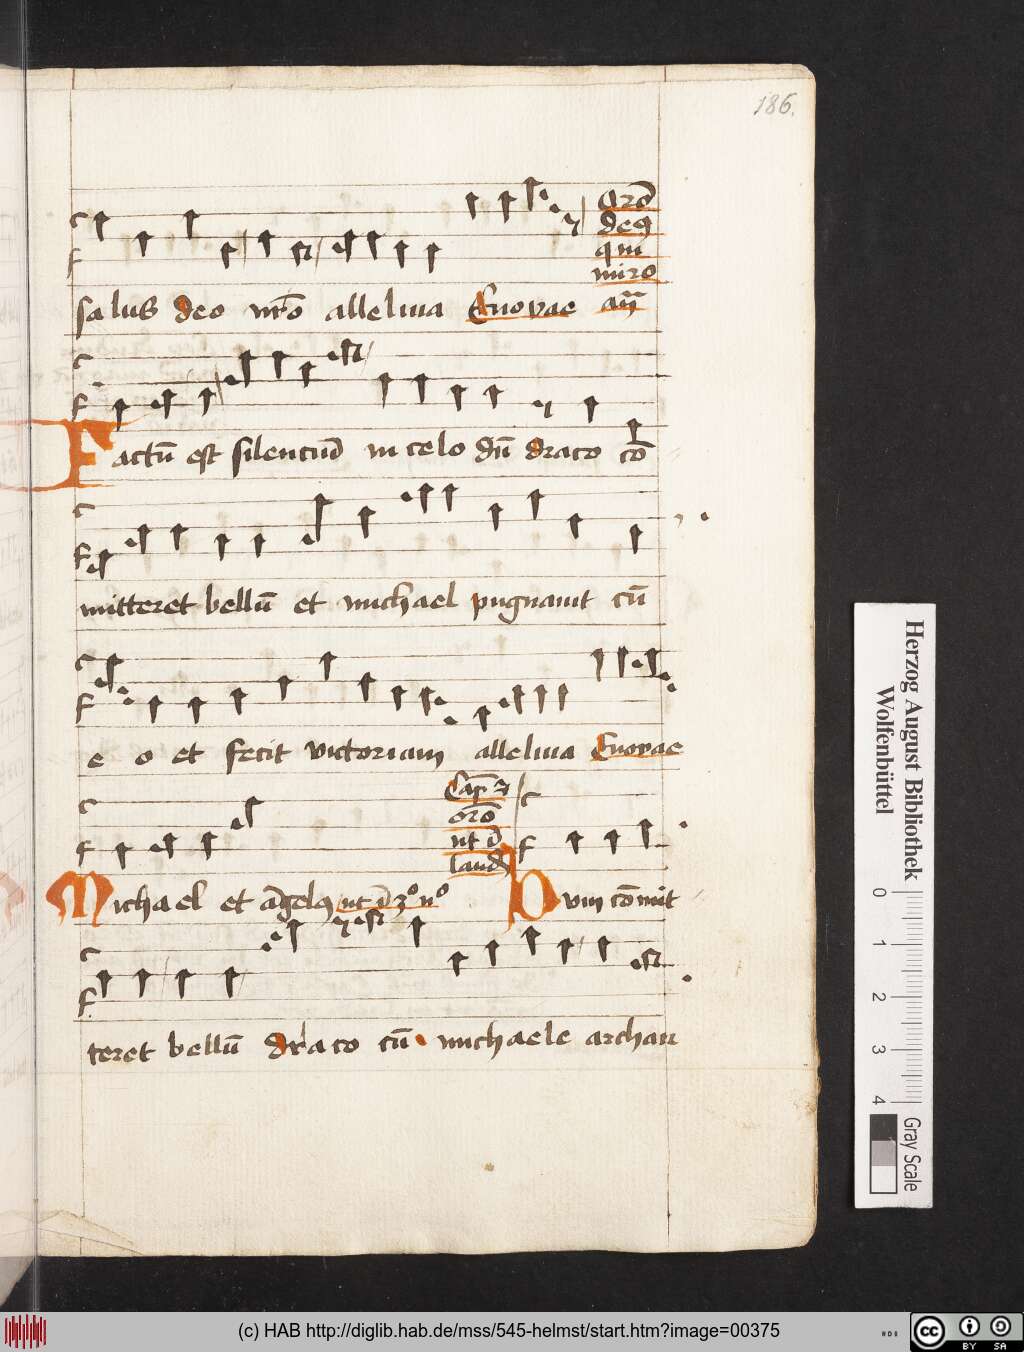 186.
Oro͞
deꝰ
qui
miro
salus deo nr͞o alleluia Euouae an͞
Factu͞ est silenciu͞ in celo du͞ draco co͞
mitteret bellu͞ et michael pugnauit cu͞
e o et fecit victoriam alleluia Euouae
Cap
oro͞
ut i͞
laud
Michael et a͞gelꝰ ut i͞ 3º nº Dum co͞mit
teret bellu͞ draco cu͞ michaele archan
Herzog August Bibliothek
Wolfenbüttel
0 1 2 3 4
Gray Scale
(c) HAB http://diglib.hab.de/mss/545-helmst/start.htm?image=00375
cc BY SA